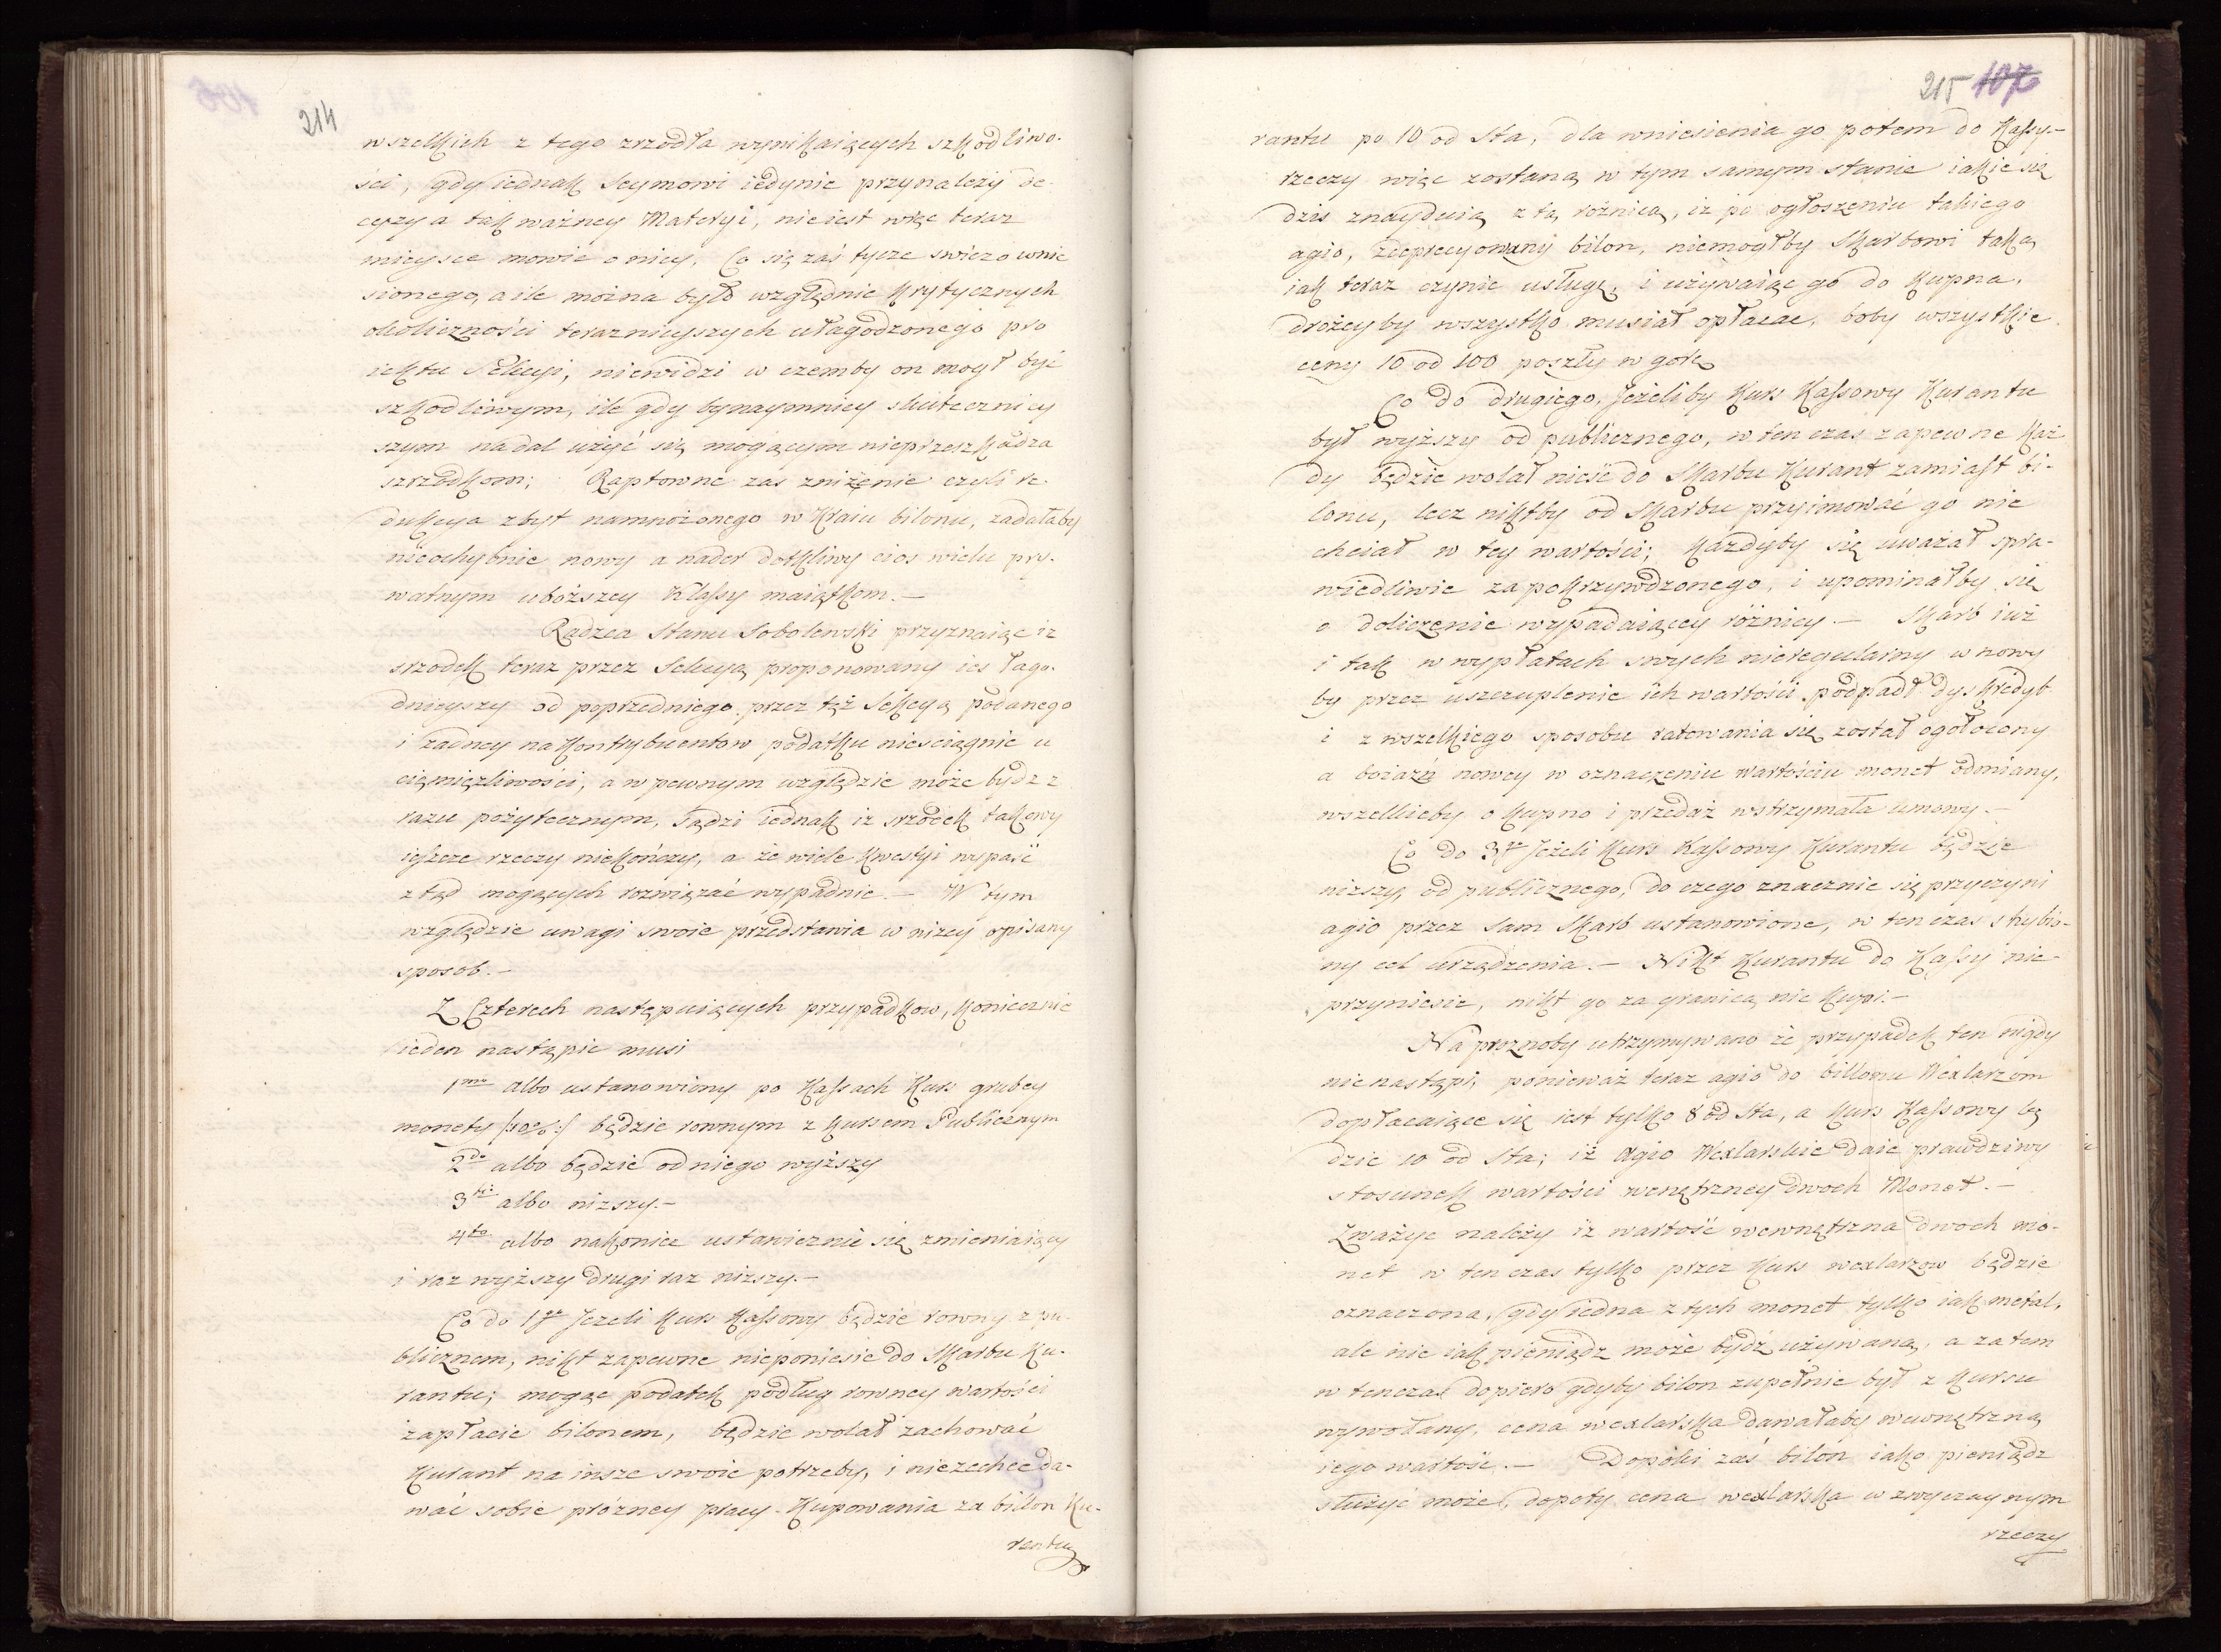 214
wszelkich z tego zrzodła wynikaiących szkodliwo-
ści, gdy iednak Seymowi iedynie przynależy de-
cyzya tak ważney Materyi, nieiest więc teraz
mieysce mowić o niey. Co się zaś tycze swieżo wnie
sionego, a ile można było względnie krytycznych
okoliczności teraznieyszych ułagodzonego pro
iektu Sekcyi, niewidzi w czemby on mogł być
szkodliwym, ile gdy bynaymniey skuteczniey
szym nadal użyć się mogącym nieprzeszkadza
szrzodkom; Raptowne zas zniżenie czyli re-
dukcya zbyt namnożonego w Kraiu bilonu, zadałaby
nieochybnie nowy a nader dotkliwy cios wielu pry-
watnym uboższey Klassy maiątkom.—
Radzca Stanu Sobolewski przyznaiąc iż
srzodek teraz przez Sekcyą proponowany ies łago-
dnieyszy od poprzedniego przez tęż Sekcyą podanego
i żadney na Kontrybuentow podatku niesciągnie u
ciemięzliwości, a w pewnym względzie może bydz z
razu pożytecznym, Sądzi iednak iż srzodek takowy
ieszcze rzeczy niekończy, a że wiele kwestyi wypaść
ztąd mogących rozwiązać wypadnie.— W tym
względzie uwagi swoie przedstawia w niżey opisany
sposob.—
Z Czterech następuiących przypadkow, koniecznie
ieden nastąpić musi
1mo albo ustanowiony po Kassach Kurs grubey
monety będzie rownym z kursem Publicznym
2do albo będzie od niego wyższy
3tio albo niższy.—
4to albo nakoniec ustawicznie się zmieniaiący
i raz wyższy drugi raz niższy.—
Co do 1go Jezeli kurs Kassowy będzie rowny z pu-
blicznem, nikt zapewne nieponiesie do Skarbu Ku-
rantu; mogąc podatek podług rowney wartości
zapłacić bilonem, będzie wolał zachować
Kurant na insze swoie potrzeby, i niezechce da-
wać sobie prózney pracy Kupowania za billon Ku-
rantu
215 107
rantu po 10 od Sta, dla wniesienia go potem do Kassy.—
rzeczy więc zostaną w tym samym stanie iakie się
dzis znayduią z tą rożnicą, iż po ogłoszeniu takiego
agio, zdeprecyowany bilon, niemogłby Skarbowi taką
iak teraz czynić usługę, i używaiąc go do kupna,
drożeyby wszystko musiał opłacać, boby wszystkie
ceny 10 od 100 poszły w gorę
Co do drugiego, Jeżeliby Kurs Kassowy Kurantu
był wyższy od publicznego, w ten czas zapewne każ
dy będzie wolał nieść do Skarbu Kurant zamiast bi-
lonu, lecz niktby od Skarbu przyimować go nie
chciał w tey wartości; każdyby się uważał spra-
wiedliwie zapokrzywdzonego, i upominałby się
o doliczenie wypadaiącey różnicy — Skarb iuż
i tak w wypłatach swych nieregularny w nowy
by przez uszczuplenie ich wartości podpadł dyskredyt
i z wszelkiego sposobu ratowania się został ogołocony
a boiaźń nowey w oznaczeniu wartościu monet odmiany,
wszelkieby o kupno i przedaż wstrzymała umowy.—
Co do 3go Jeżeli Kurs Kassowy Kurantu będzie
niższy od publicznego, do czego znacznie się przyczyni
agio przez sam Skarb ustanowione, w ten czas chybio-
ny cel urządzenia.— Nikt Kurantu do Kassy nie-
przyniesie, nikt go za granicą nie kupi.—
Na prożnoby utrzymywano że przypadek ten nigdy
nienastąpi, ponieważ teraz agio do billonu Wexlarzom
dopłacaiące się iest tylko 8 od Sta, a kurs Kassowy bę
dzie 10 od Sta; iż Agio Wexlarskie daie prawdziwy
stosunek wartości wenętrzney dwoch Monet.—
Zważyć należy iż wartość wewnętrzna dwoch mo-
net w ten czas tylko przez kurs wexlarzow będzie
oznaczona, gdy iedna z tych monet tylko iak metal,
ale nie iak pieniądz może bydź używaną, a zatem
w tenczas dopiero gdyby bilon zupełnie był z kursu
wywołany, cena wexlarska dawałaby wewnętrzną
iego wartość.— Dopóki zaś bilon iako pieniądz
służyć może, dopoty cena wexlarska w zwyczaynym
rzeczy